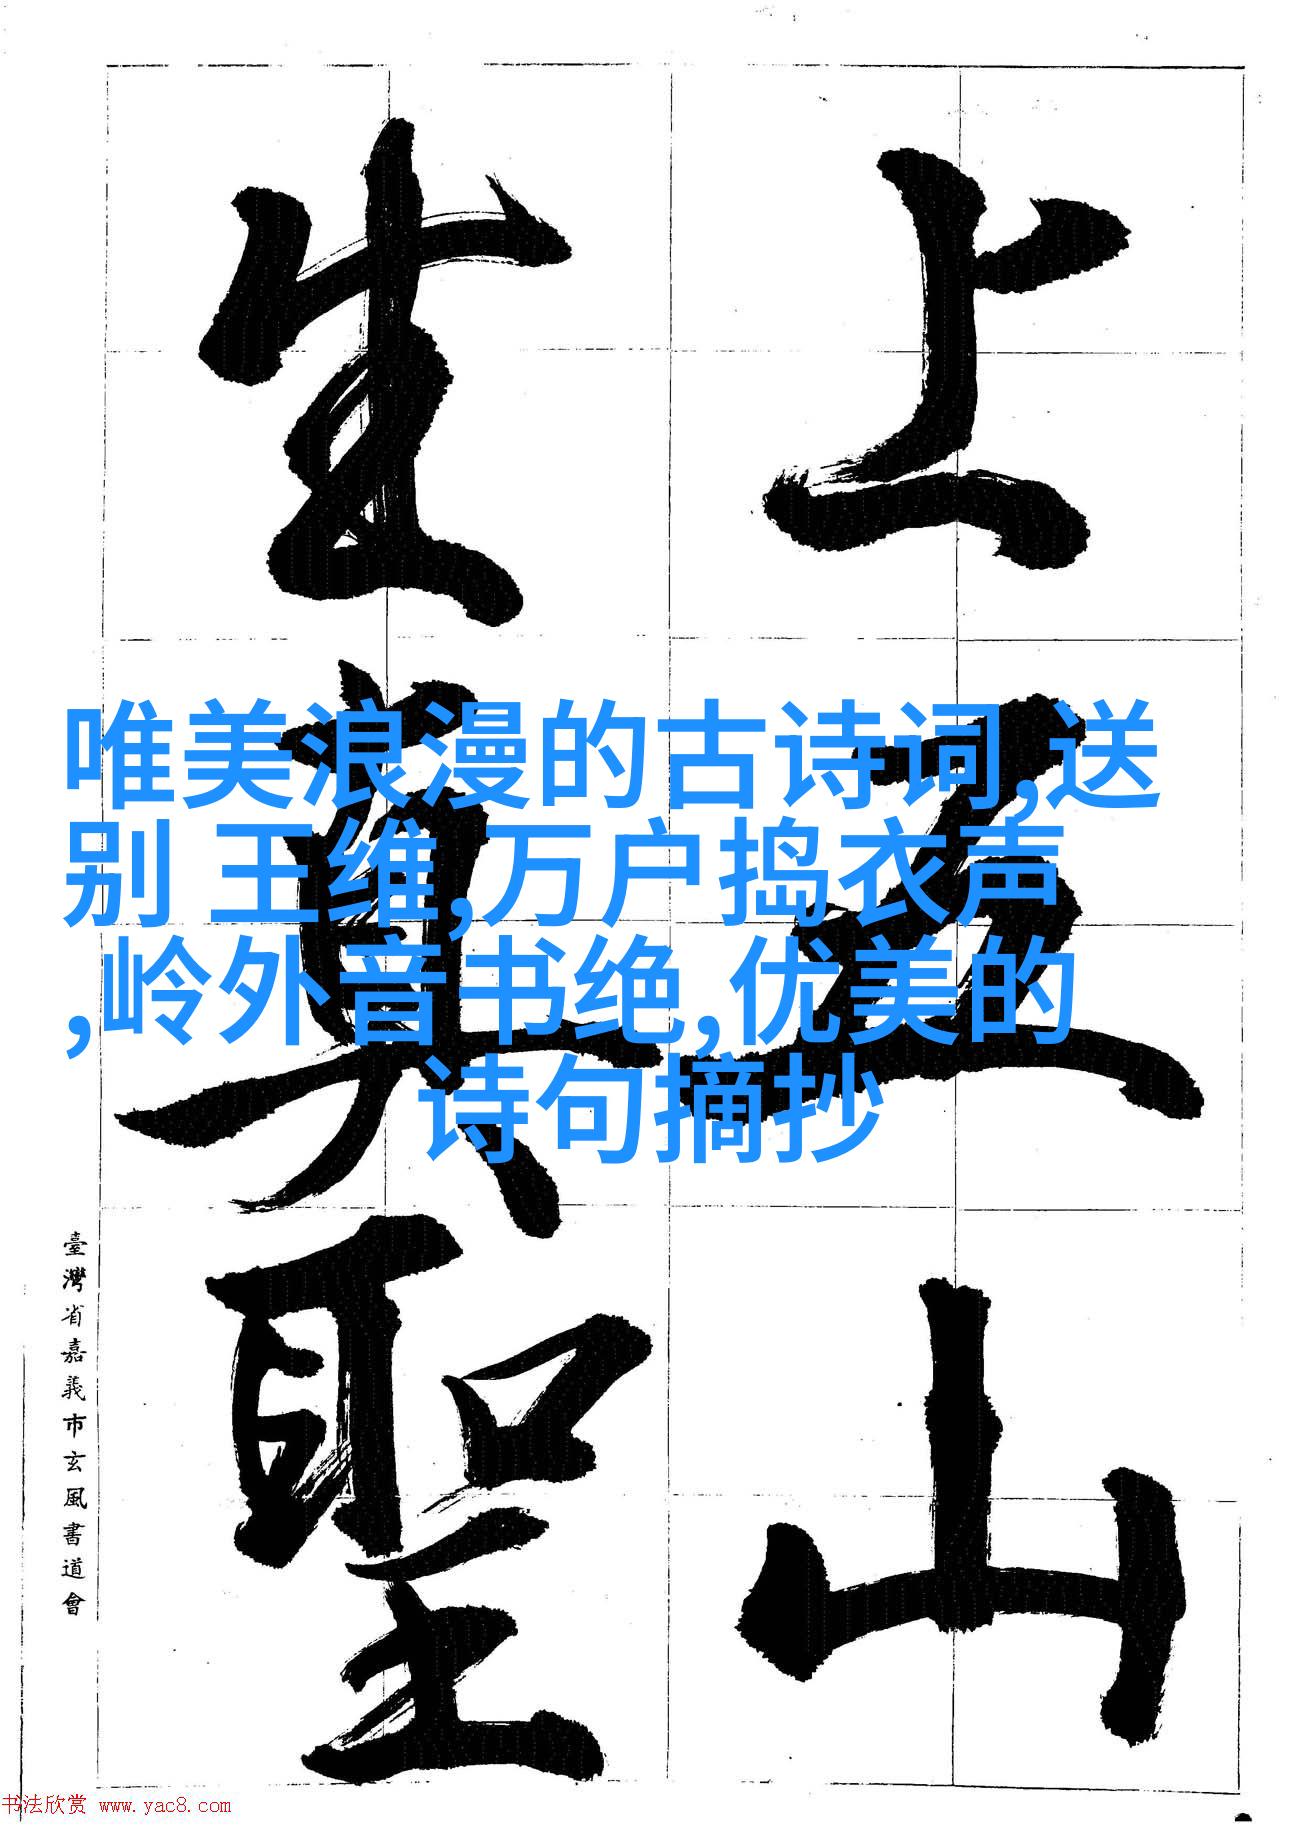 上五山
生真聖
唯美浪漫的古诗词,送
别 王维,万户捣衣声
,岭外音书绝,优美的
诗句摘抄
臺灣省嘉義市玄風書道會
书法欣赏 www.yac8.com